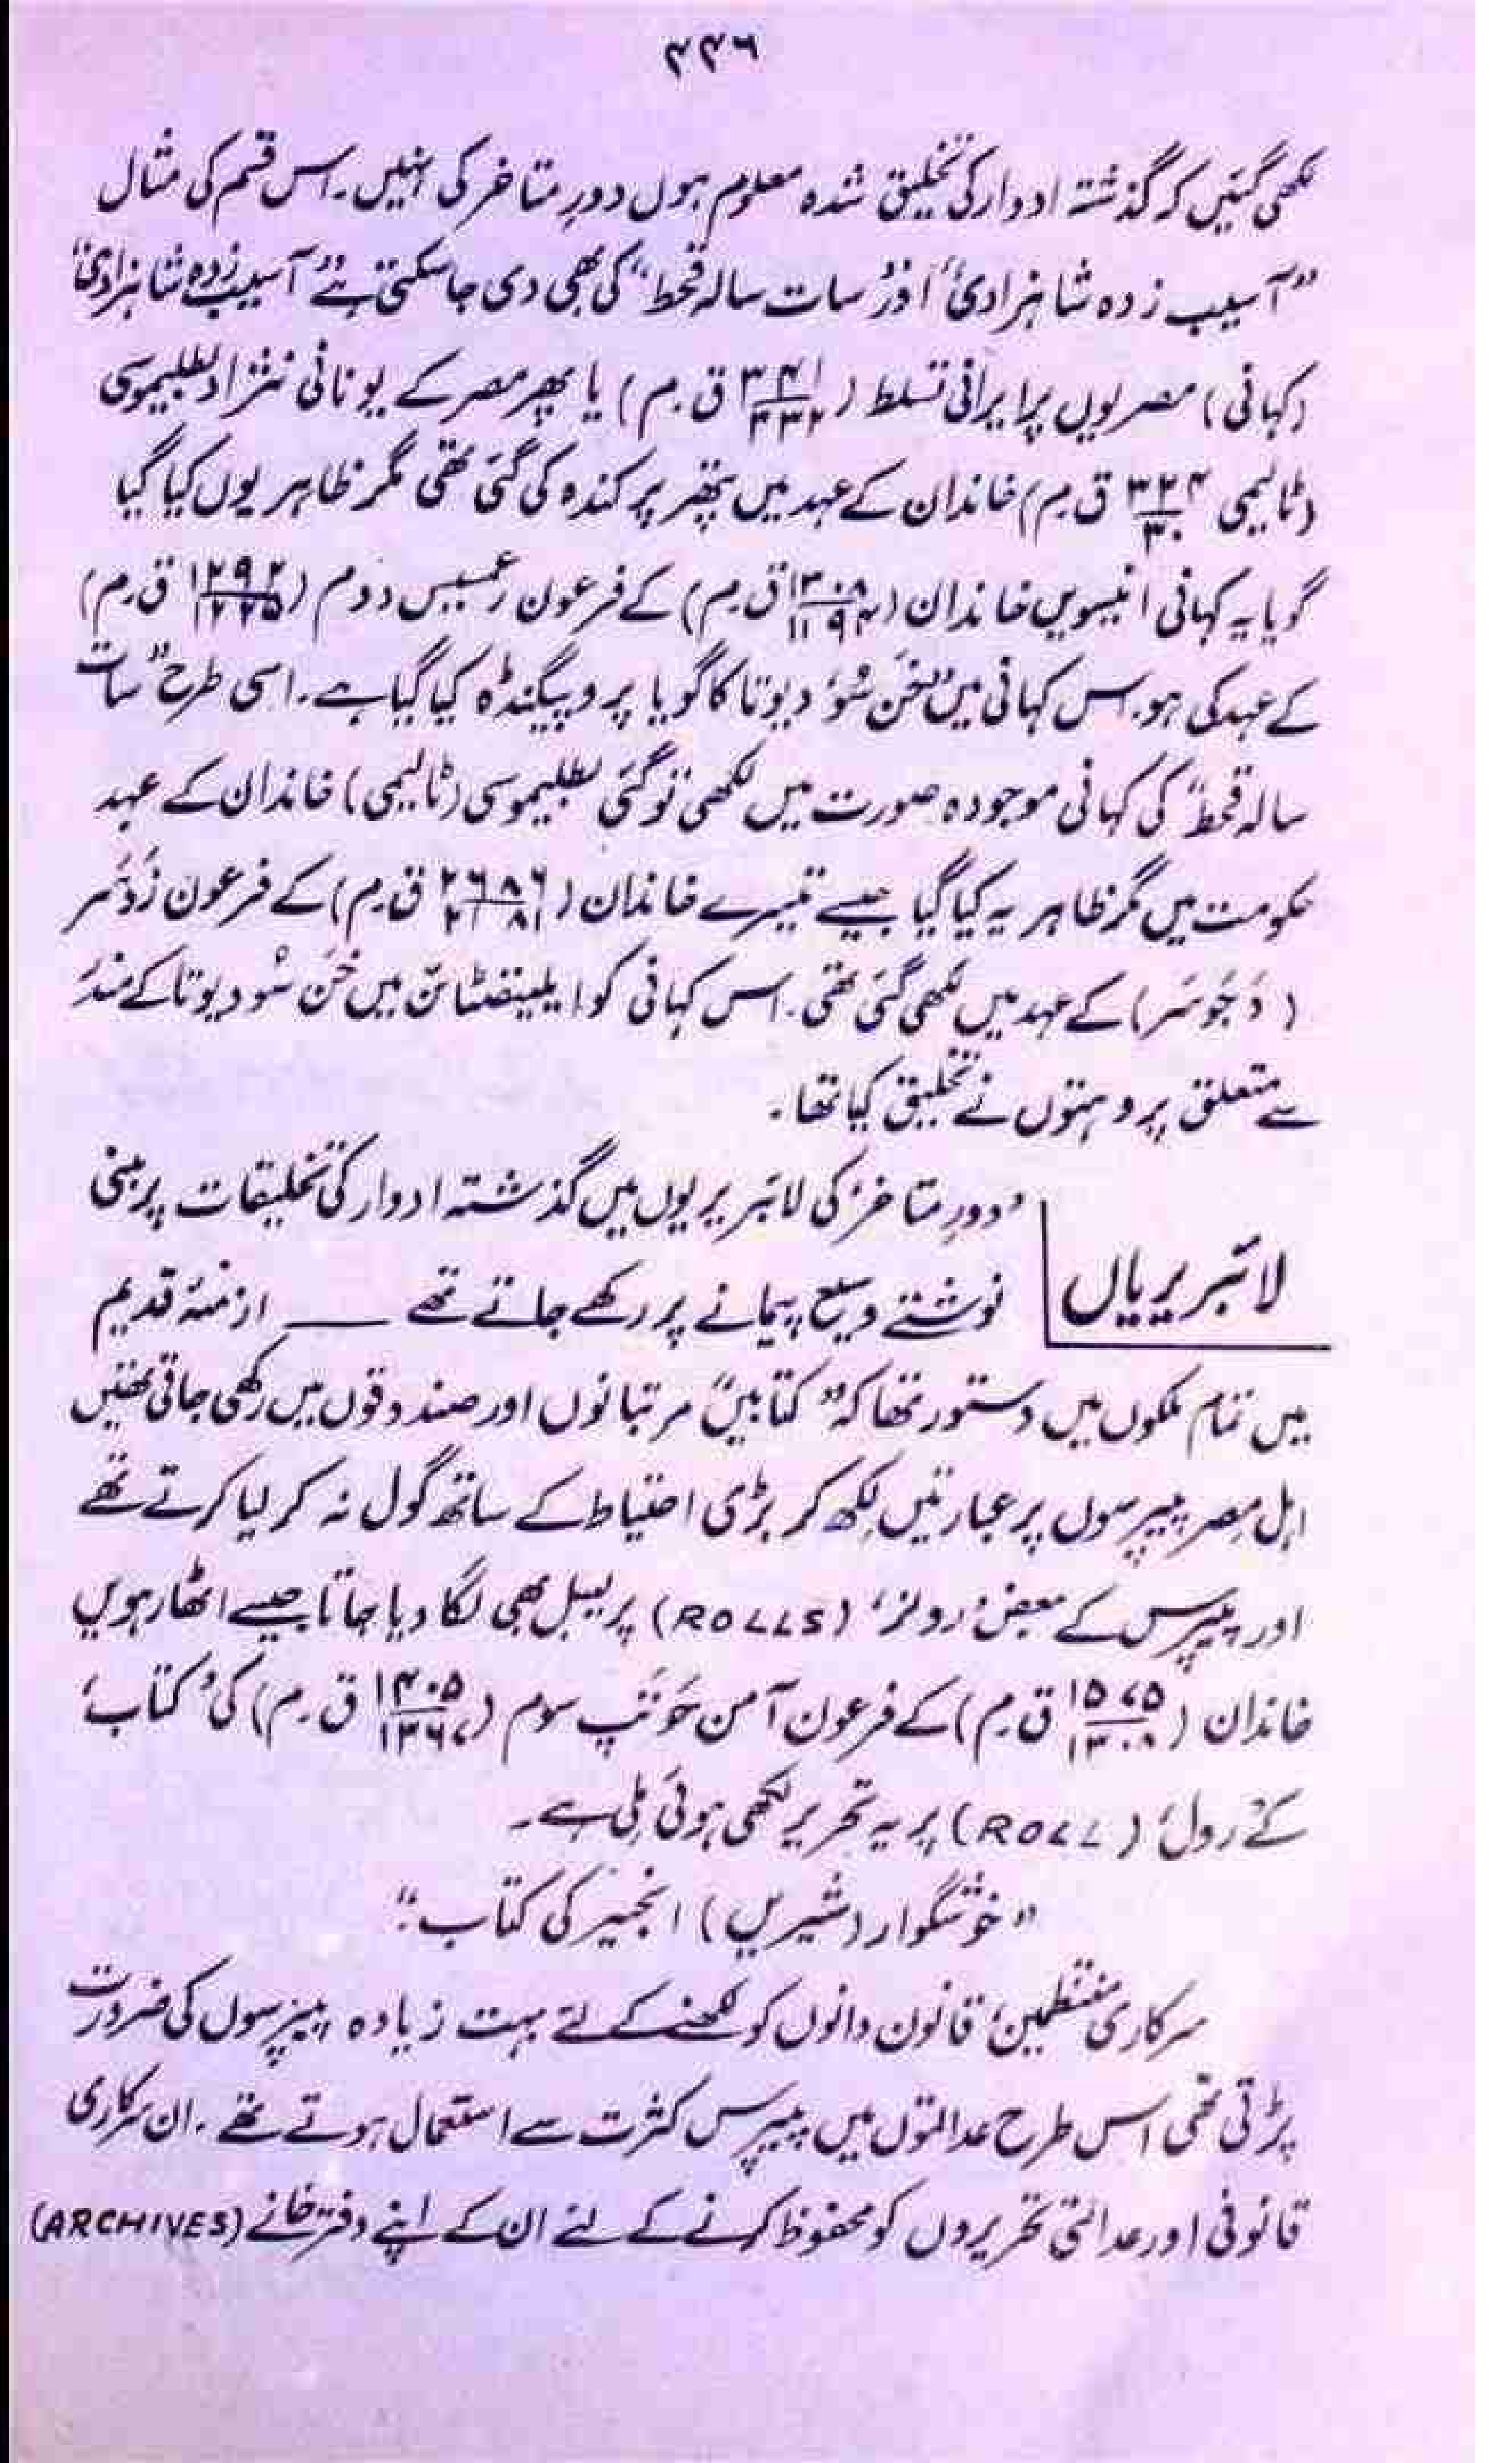 ۴۴۶
لکھی گئیں کہ گذشتہ ادوار کی تخلیق شدہ معلوم ہوں دورِ متاخر کی انہیں۔ اس قسم کی مثال
"آسیب زدہ شاہزادی" اور "سات سالہ قحط" کی بھی دی جا سکتی ہے "آسیب زدہ شاہزادی"
(کہانی) مصریوں پر ایرانی تسلط (۳۴۱/۳۳۲ ق۔م) یا پھر مصر کے یونانی نژاد بطلیموسی
(ٹالیمی ۳۲۴/۳۰ ق۔م) خاندان کے عہد میں پتھر پر کندہ کی گئی تھی مگر ظاہر یوں کیا گیا
گویا یہ کہانی انیسویں خاندان (۱۳۰۸/۱۱۹۴ ق۔م) کے فرعون رعمسیس دوم (۱۲۹۲/۱۲۲۵ ق۔م)
کے عہد کی ہو۔ اس کہانی میں "خَن سُو" دیوتا کا گویا پروپیگنڈہ کیا گیا ہے۔ اسی طرح "سات
سالہ قحط" کی کہانی موجودہ صورت میں لکھی تو گئی بطلیموسی (ٹالیمی) خاندان کے عہد
حکومت میں مگر ظاہر یہ کیا گیا جیسے تیسرے خاندان (۲۶۸۶/۲۱۸۱ ق۔م) کے فرعون زَوسَر
(دَجوسَر) کے عہد میں لکھی گئی تھی۔ اس کہانی کو ایلیفنٹائن میں خَن سُو دیوتا کے مندر
سے متعلق پروہتوں نے تخلیق کیا تھا۔
لائبریریاں
'دورِ متاخر' کی لائبریریوں میں گذشتہ ادوار کی تخلیقات پر مبنی
نوشتے وسیع پیمانے پر رکھے جاتے تھے ـــــ ازمنۂ قدیم
میں تمام ملکوں میں دستور تھا کہ "کتابیں" مرتبانوں اور صندوقوں میں رکھی جاتی تھیں
اہل مصر پیپرسوں پر عبارتیں لکھ کر بڑی احتیاط کے ساتھ گول نہ کر لیا کرتے تھے
اور پیپرس کے بعض 'رولز' (ROLLS) پر لیبل بھی لگا دیا جاتا جیسے اٹھارہویں
خاندان (۱۵۷۵/۱۳۰۸ ق۔م) کے فرعون آمن حَوتَپ سوم (۱۴۰۵/۱۳۶۷ ق۔م) کی 'کتاب'
کے 'رول' (ROLL) پر یہ تحریر لکھی ہوئی ملی ہے۔
"خوشگوار (شیریں) انجیر کی کتاب"
سرکاری منتظمین، قانون دانوں کو لکھنے کے لئے بہت زیادہ پیپرسوں کی ضرورت
پڑتی تھی اس طرح عدالتوں میں پیپرس کثرت سے استعمال ہوتے تھے۔ ان سرکاری
قانونی اور عدالتی تحریروں کو محفوظ کرنے کے لئے ان کے اپنے دفتر خانے (ARCHIVES)